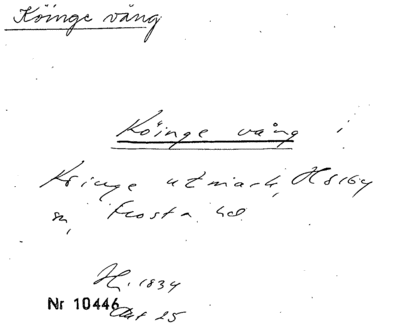 Köinge vång
Köinge vång i
Köinge utmark, Hälby
sn, Frosta hd
H. 1834
Nr 10446
Akt 25